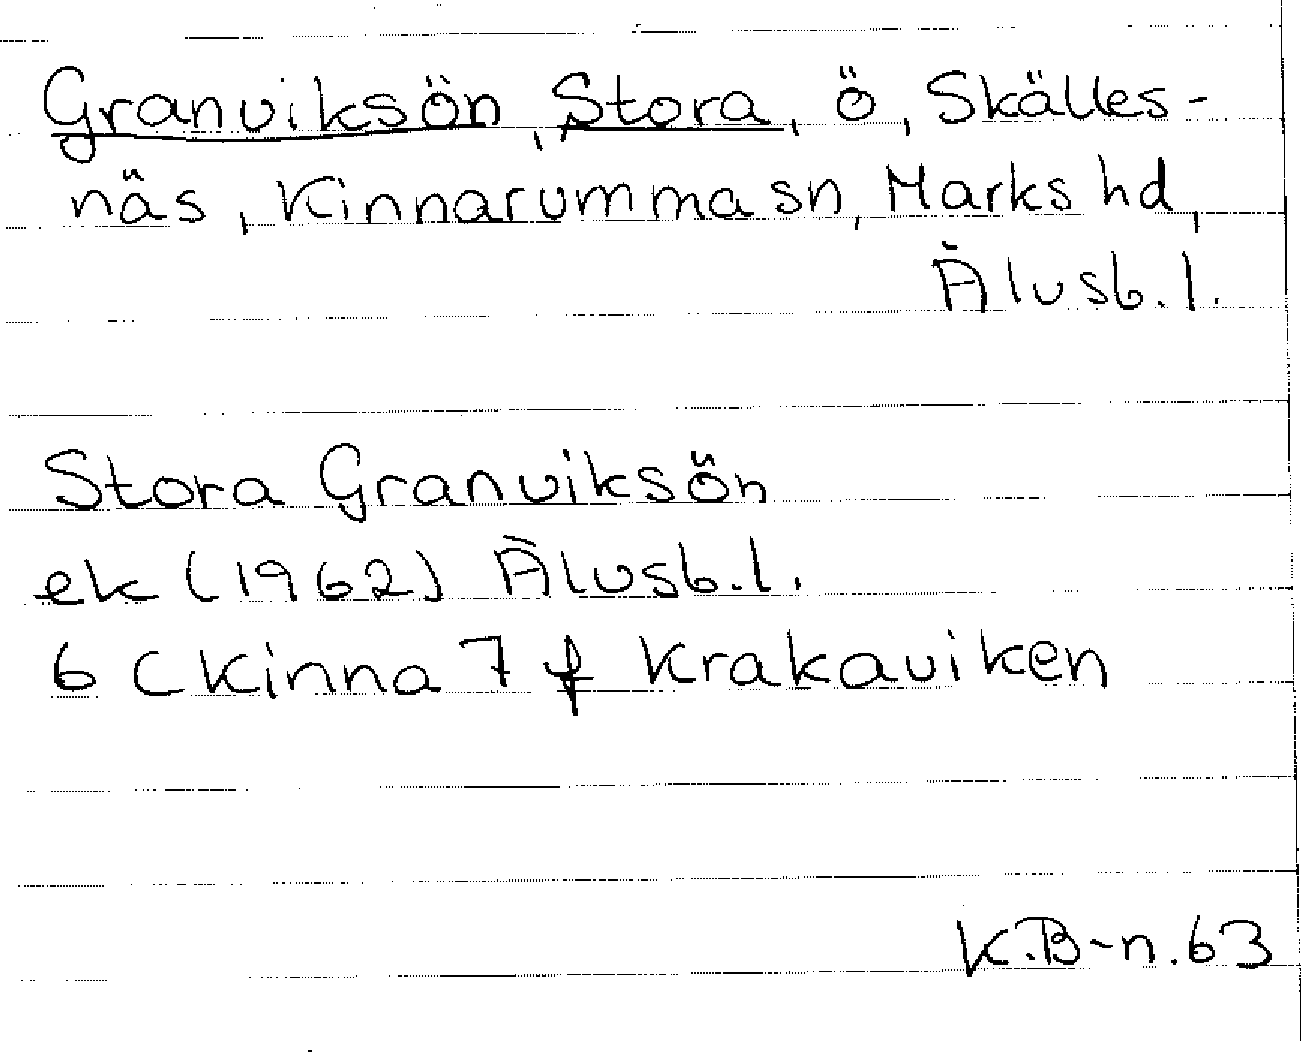 Granviksön, Stora, ö, Skälles-
näs, Kinnarumma sn, Marks hd,
Älvsb. l.
Stora Granviksön
ek (1962) Älvsb. l.
6 C Kinna 7 f Krakaviken
K.B-n. 63